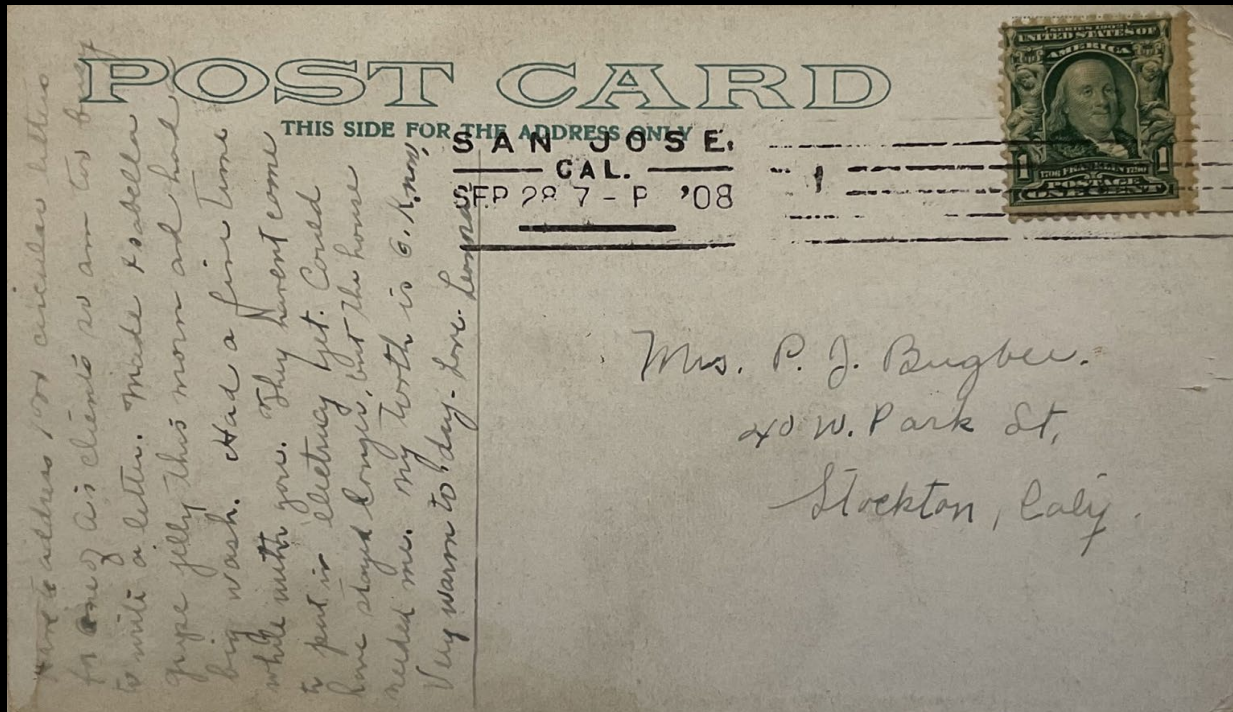 POST CARD
THIS SIDE FOR THE ADDRESS ONLY
SAN JOSE.
CAL.
SEP 28 7-P '08
1
SERIES 1902
UNITED STATES OF
AMERICA
1 1
1706 FRANKLIN 1790
POSTAGE
ONE CENT
Mrs. P. J. Bugbee.
40 W. Park St,
Stockton, Calif.
address 170 circular letters
for one of A's clients so am too busy
to write a letter. Made Isabella
grape jelly this morn and had
big wash. Had a fine time
while with you. They havent come
to put in electricity yet. Could
have stayed longer, but the house
needed me. My tooth is O.K. now.
Very warm to'day. Love. Leonora